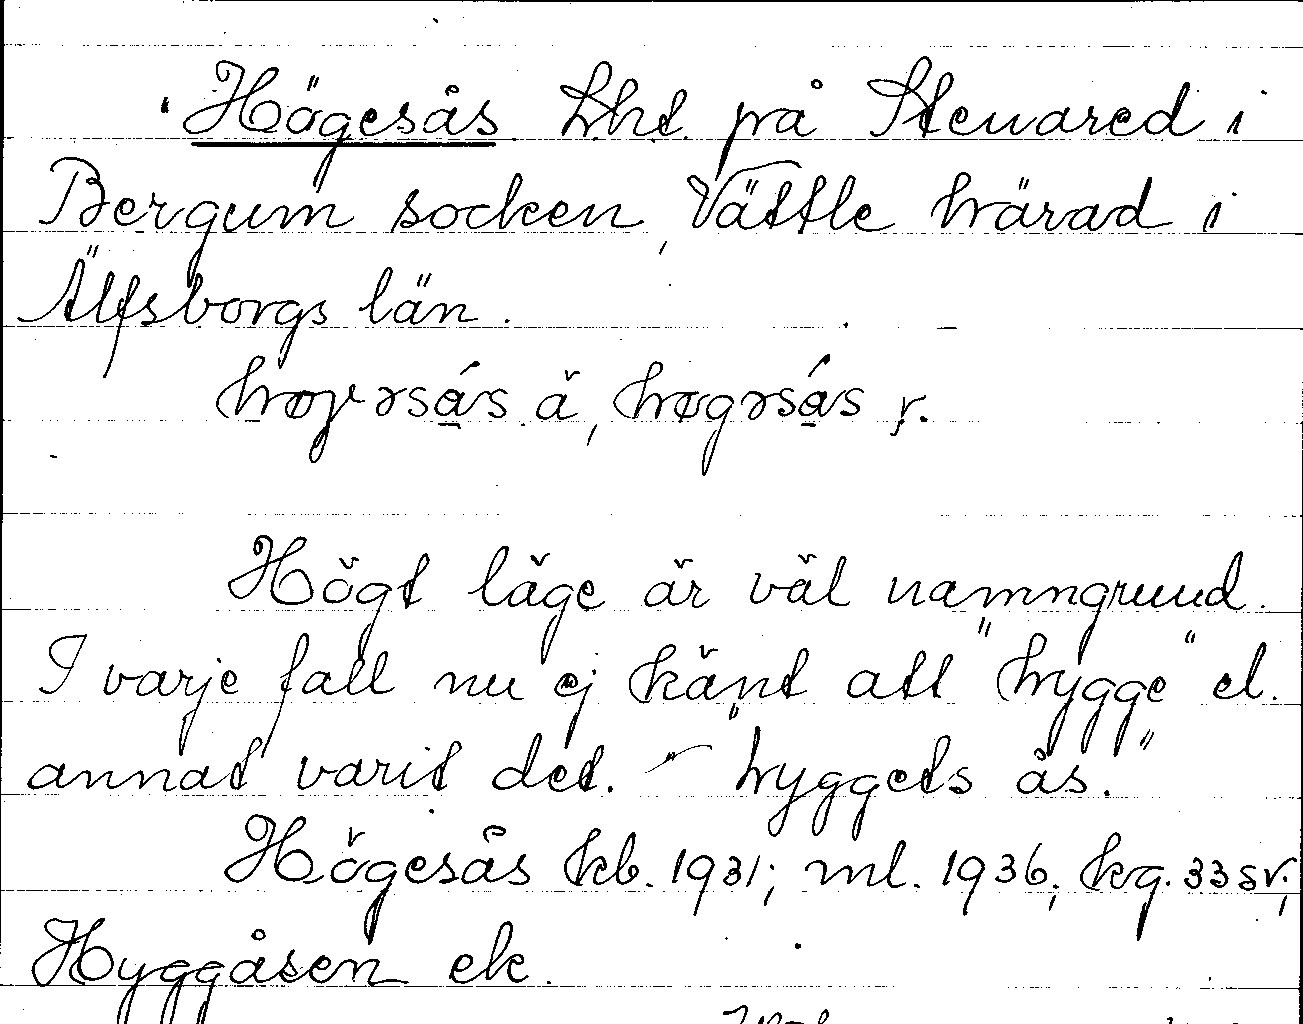 Högesås Lht. på Stenared i
Bergum socken, Vättle härad i
Älfsborgs län.
høgəsás ä, høgəsás y.
Högt läge är väl namngrund.
I varje fall nu ej känt att "hygge" el.
annat varit det. - "hyggets ås."
Högesås kb. 1931; ml. 1936; kg. 33 sv;
Hyggåsen ek.